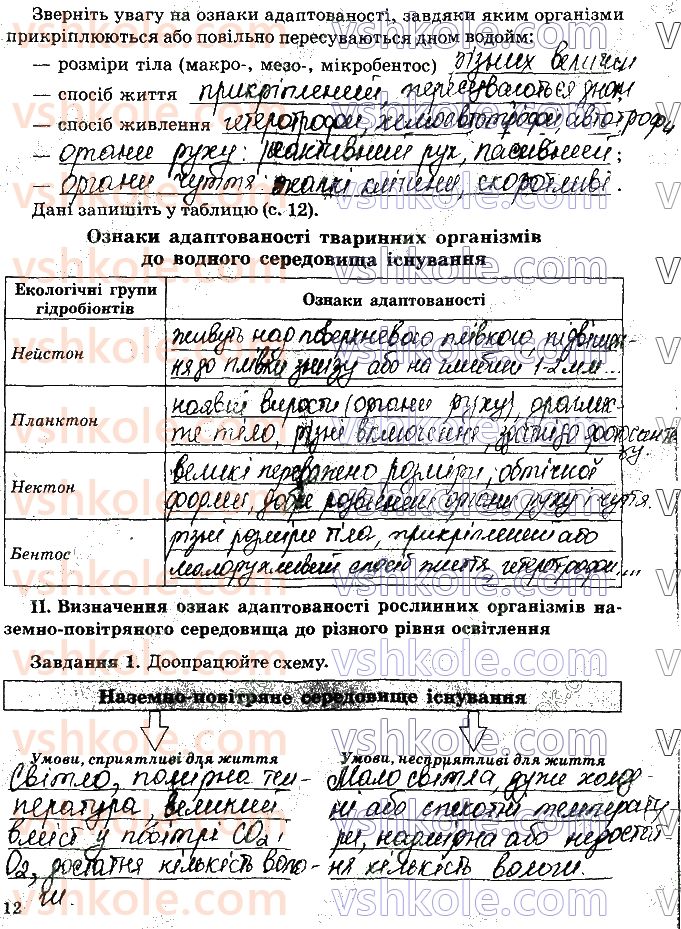 Зверніть увагу на ознаки адаптованості, завдяки яким організми
прикріплюються або повільно пересуваються дном водойм:
— розміри тіла (макро-, мезо-, мікробентос) різних величин
— спосіб життя прикріплений, пересуваються дном
— спосіб живлення гетеротрофи, хемоавтотрофи, автотрофи
— органи руху: активний рух, пасивний;
— органи чуття: жалкі клітини, скоротливі.
Дані запишіть у таблицю (с. 12).
Ознаки адаптованості тваринних організмів
до водного середовища існування
Екологічні групи гідробіонтів
Ознаки адаптованості
Нейстон
живуть над поверхневою плівкою, підвішен-
ня до плівки знизу або на глибині 1-2 мм...
Планктон
наявні вирости (органи руху),
те тіло, різні включення,
Нектон
великі переважено розміри, обтічної
форми, добре розвинені органи руху і чуття.
Бентос
різні розміри тіла, прикріплений або
малорухливий спосіб життя, гетеротрофи...
II. Визначення ознак адаптованості рослинних організмів на-
земно-повітряного середовища до різного рівня освітлення
Завдання 1. Доопрацюйте схему.
Наземно-повітряне середовище існування
Умови, сприятливі для життя
Світло, помірна тем-
пература, великий
вміст у повітрі CO2
O2, достатня кількість воло-
ги.
Умови, несприятливі для життя
Мало світла, дуже холод-
ні або спекотні температу
ри, надмірна або недостат-
ня кількість вологи.
12
vshkole.com